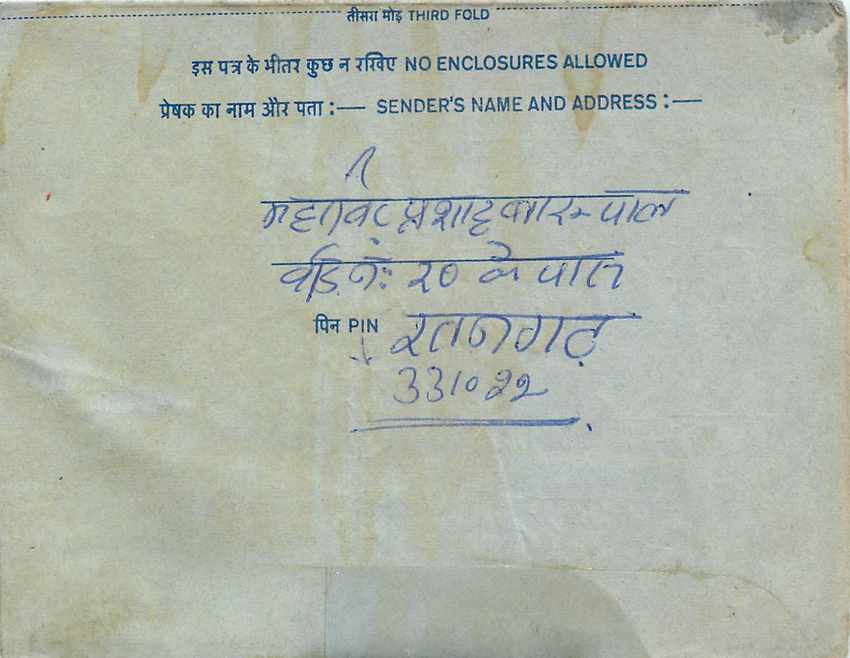 तीसरा मोड़ THIRD FOLD
इस पत्र के भीतर कुछ न रखिए NO ENCLOSURES ALLOWED
प्रेषक का नाम और पता :— SENDER'S NAME AND ADDRESS :—
महावीर प्रशाद
वार्ड नं: २० के पास
पिन PIN रतनगढ़
331022